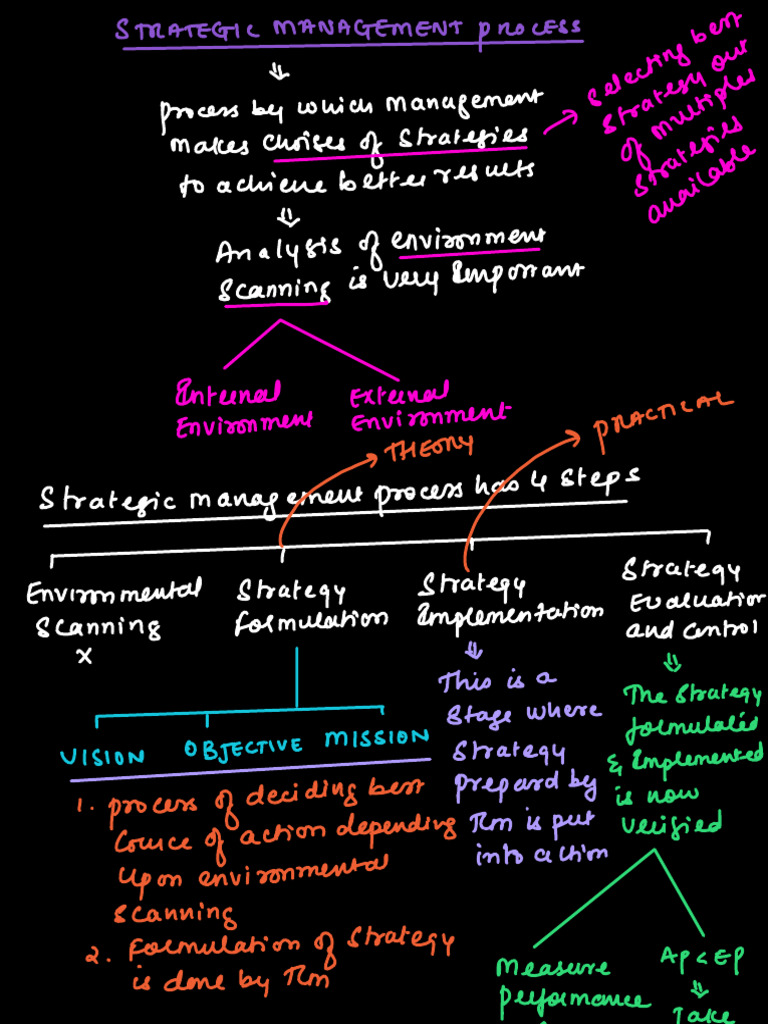 STRATEGIC MANAGEMENT PROCESS
process by which management
makes choises of strategies
to achieve better results
selecting best
strategy out
of multiples
strategies
available
Analysis of environment
scanning is very Important
Internal
Environment
External
Environment
THEORY
PRACTICAL
Strategic management process has 4 steps
Environmental
scanning
x
Strategy
formulation
Strategy
Implementation
Strategy
Evaluation
and control
VISION OBJECTIVE MISSION
1. process of deciding best
cource of action depending
upon environmental
scanning
2. Formulation of strategy
is done by TLM
This is a
stage where
strategy
prepard by
TLM is put
into action
The strategy
formulated
& Implemented
is now
verified
Measure
performance
AP < EP
Take